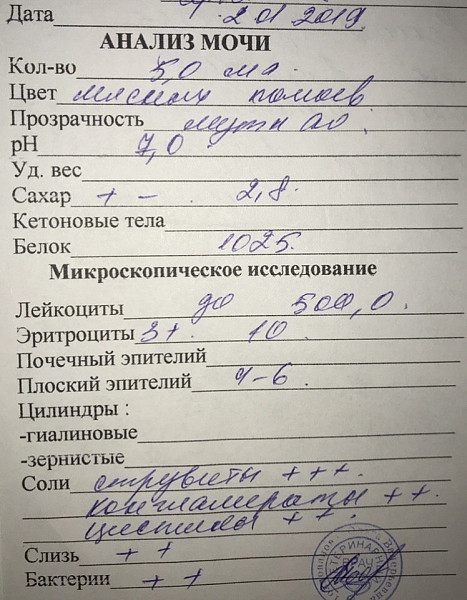 Дата 2 01 2019
АНАЛИЗ МОЧИ
Кол-во 5,0 мл.
Цвет мясных помоев
Прозрачность мутн
pH 7,0
Уд. вес
Сахар + - . 2,8.
Кетоновые тела
Белок 1025.
Микроскопическое исследование
Лейкоциты до 500,0.
Эритроциты 3+. 10.
Почечный эпителий
Плоский эпителий 4-6.
Цилиндры :
-гиалиновые
-зернистые
Соли струвиты +++.
конгламераты ++.
++.
Слизь ++
Бактерии ++
ВРАЧ